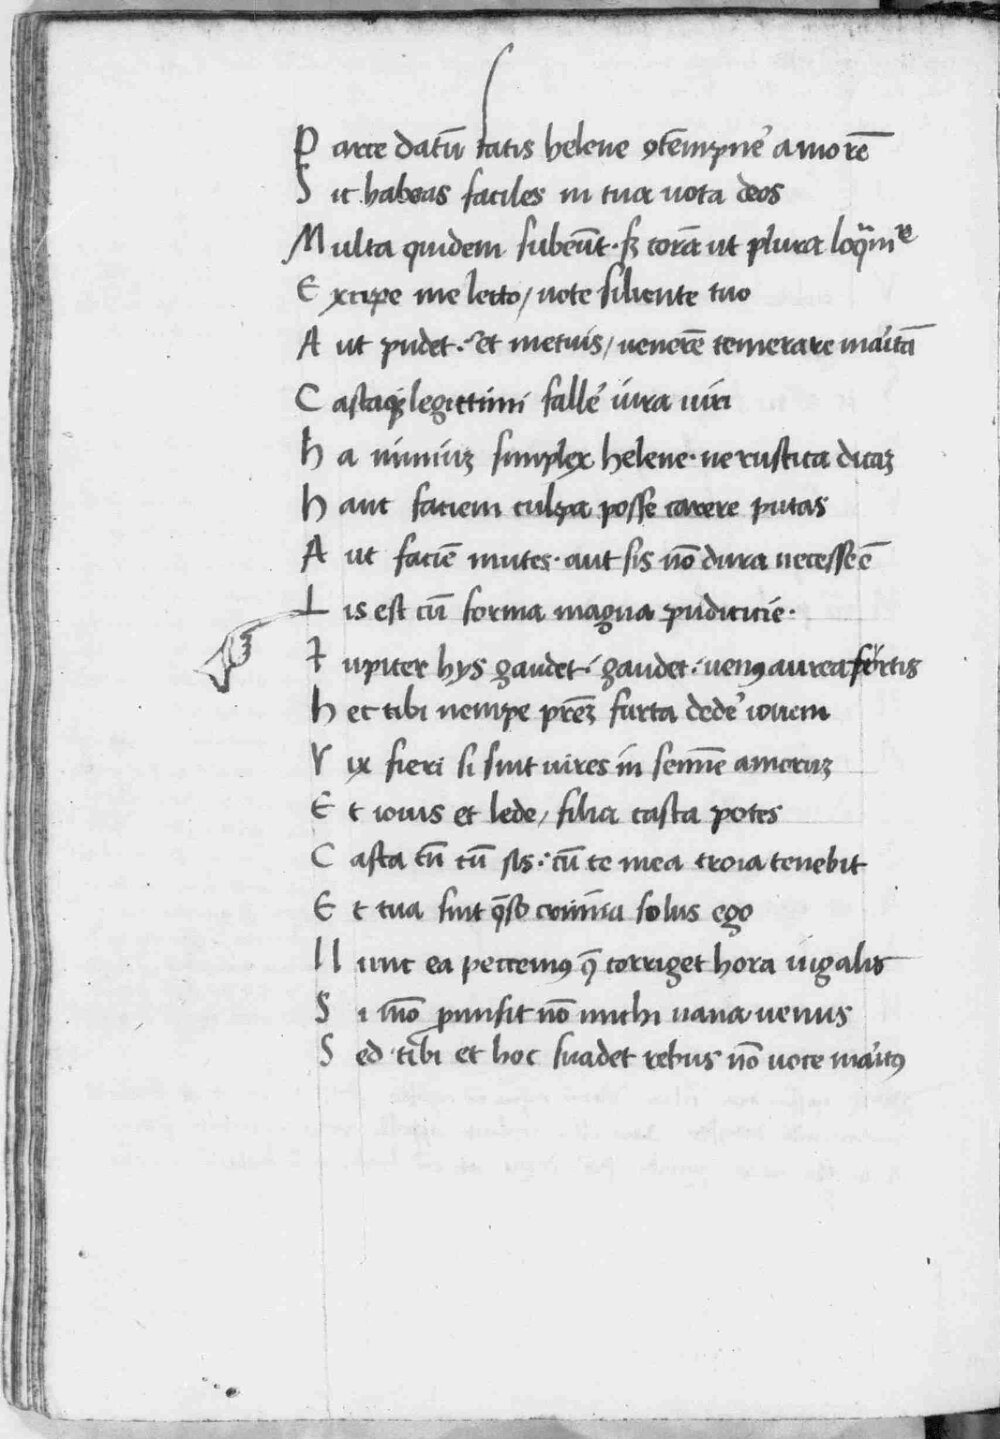 P arce datū fatis helene ꝯtēpne᷒ amorē
S ic habeas faciles in tua uota deos
M ulta quidem subeūt · sꝫ corā ut plura loq̄mr
E xcipe me lecto / nocte silente tuo
A ut pudet · et metuis / uenerē temerare maritā
C astaqꝫ legittimi falle᷒ iura uiri
h a nimiuꝫ simplex helene · ne rustica dicaꝫ
h anc faciem culpa posse carere putas
A ut faciē mutes · aut sis nō dura necesse ē
L is est cū forma magna pudicicie ·
I upiter hys gaudet · gaudet · uenꝰ aurea furtis
h ec tibi nempe prēꝫ furta dede᷒ iouem
V ix fieri si sint uires in semīe amoruꝫ
E t iouis et lede / filia casta potes
C asta tn̄ tū sis · cū te mea troia tenebit
E t tua sint q̄so crimīa solus ego
N unc ea peccemꝰ q̄ corriget hora iugalis
S i mō promisit nō michi uana uenus
S ed tibi et hoc suadet rebus nō uoce maritꝰ